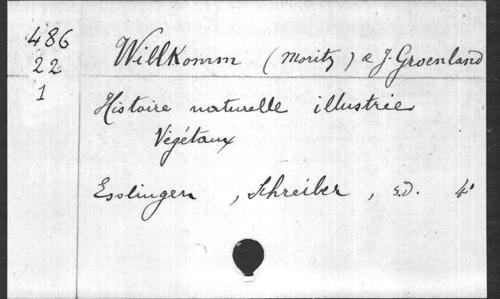 486
22
1
Willkomm (Moritz) & J. Groenland
Histoire naturelle illustrée
Végétaux
Esslingen, Schreiber, s.d. 4°